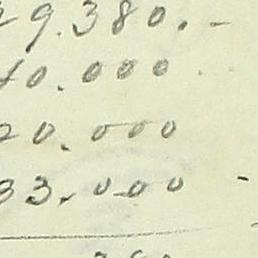 29.380.-
40.000.
20.000
33.000 -